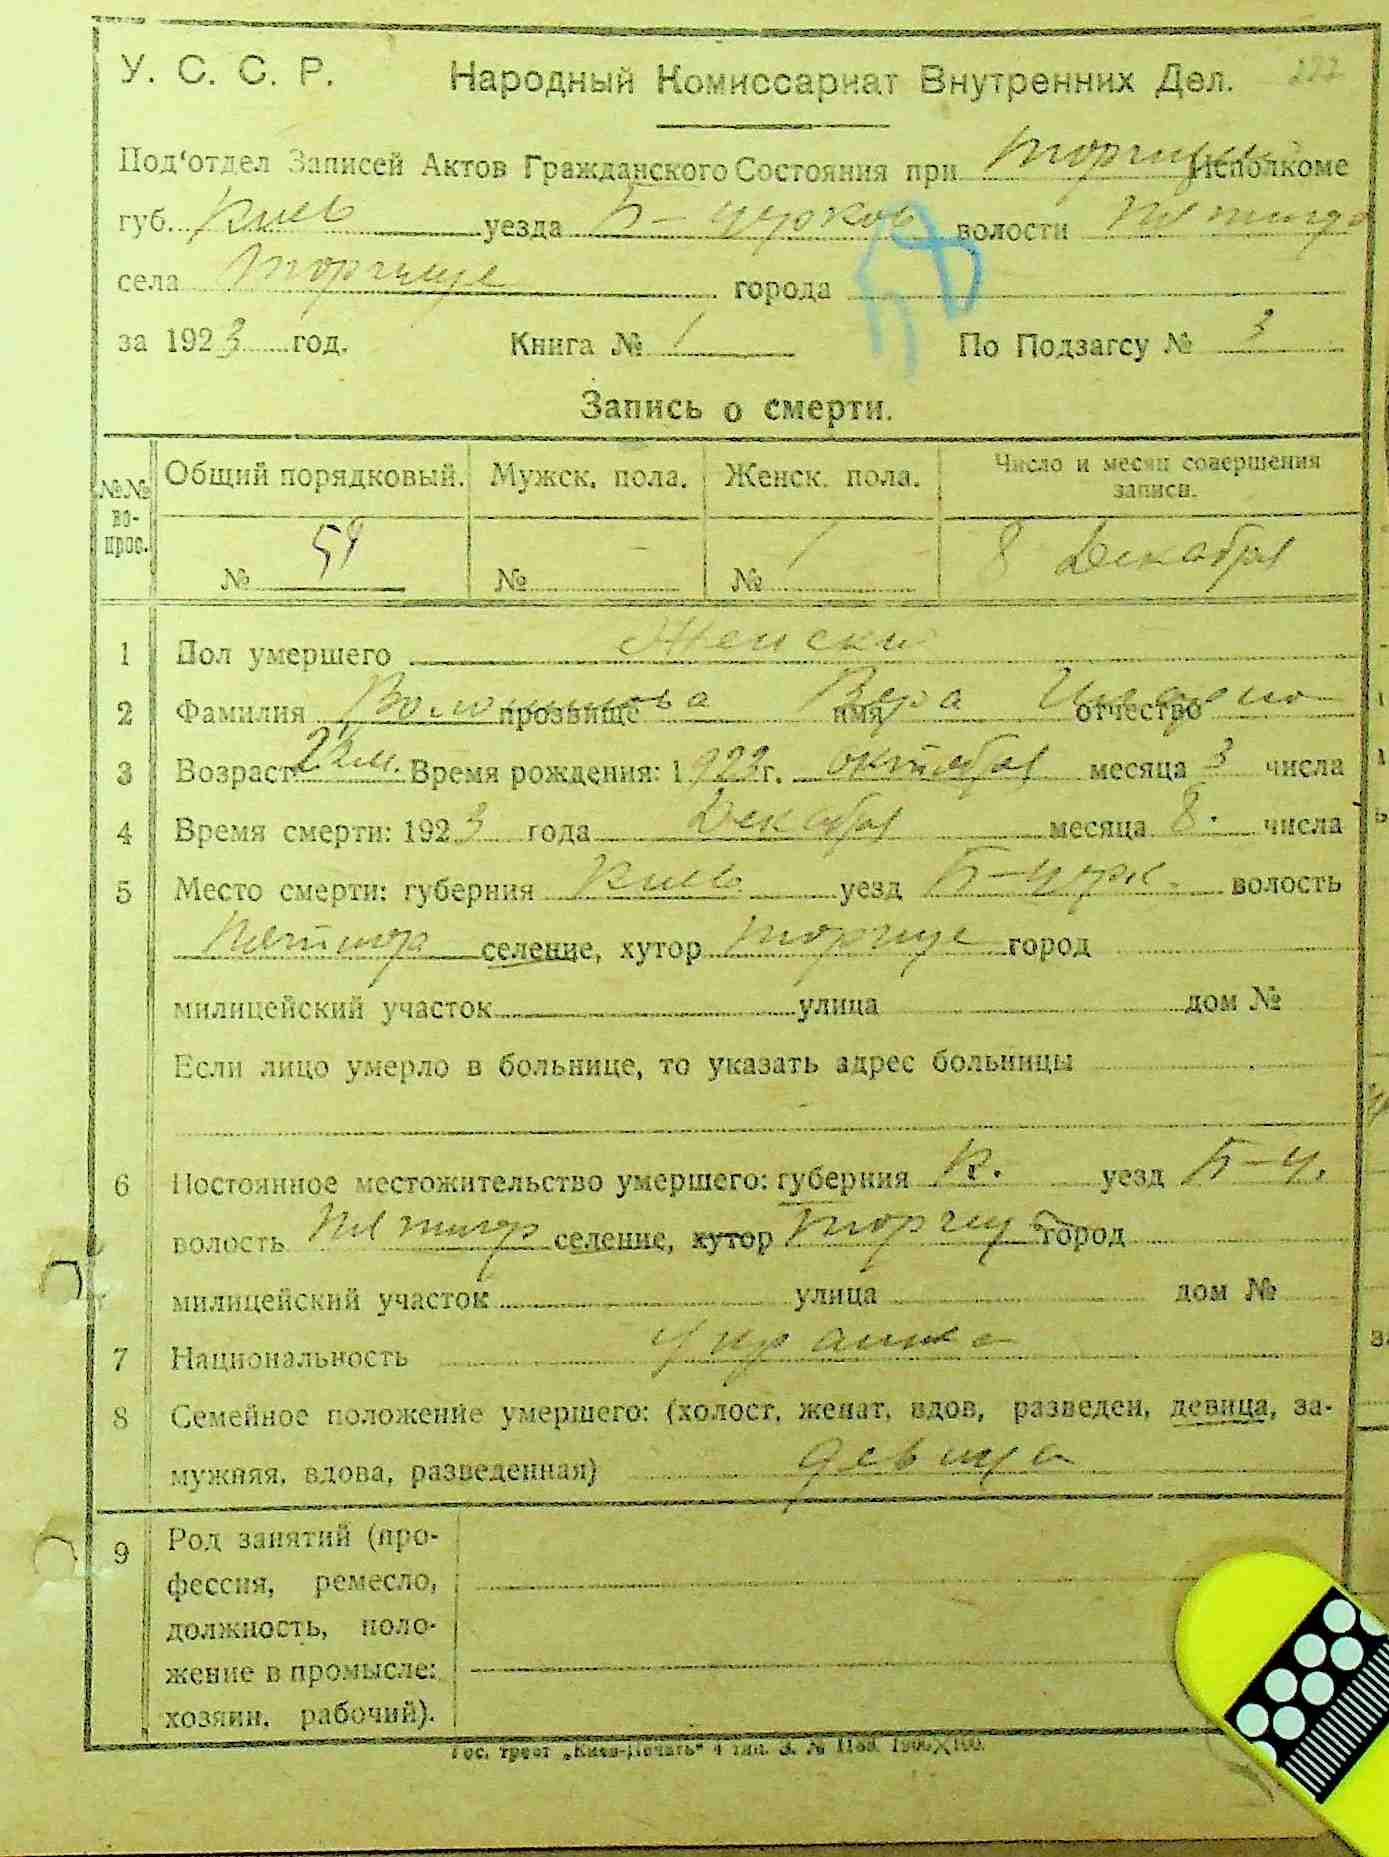 У. С. С. Р. Народный Комиссариат Внутренних Дел. 222
Под'отдел Записей Актов Гражданского Состояния при Исполкоме
губ. Киев уезда Б-церков волости
села Торчице города
за 1923 год. Книга № 1 По Подзагсу № 3
Запись о смерти.
№№ вопрос. Общий порядковый. Мужск. пола. Женск. пола. Число и месяц совершения записи.
№ № - № 1 8 Декабря
1 Пол умершего Женски
2 Фамилия прозвище имя Вера отчество
3 Возраст Время рождения: 1922 г. октября месяца 3 числа
4 Время смерти: 1923 года Декабря месяца 8. числа
5 Место смерти: губерния Киев уезд Б-церк. волость
селение, хутор Торчице город
милицейский участок улица дом №
Если лицо умерло в больнице, то указать адрес больницы
6 Постоянное местожительство умершего: губерния К. уезд Б-ц.
волость селение, хутор город
милицейский участок улица дом №
7 Национальность
8 Семейное положение умершего: (холост, женат, вдов, разведен, девица, за-
мужняя, вдова, разведенная) девица
9 Род занятий (про-
фессия, ремесло,
должность, поло-
жение в промысле:
хозяин, рабочий).
Гос. трест „Киев-Печать" 4 тип. З. №